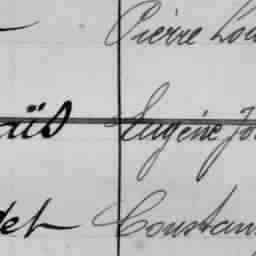 Pierre Lou
aïs Eugène Jo
det Constan